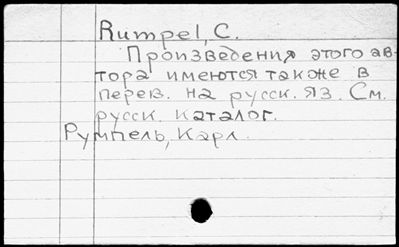 Rumpel, C.
Произведения этого ав-
тора имеются также в
перев. на русск. яз. См.
русск. каталог.
Румпель, Карл.